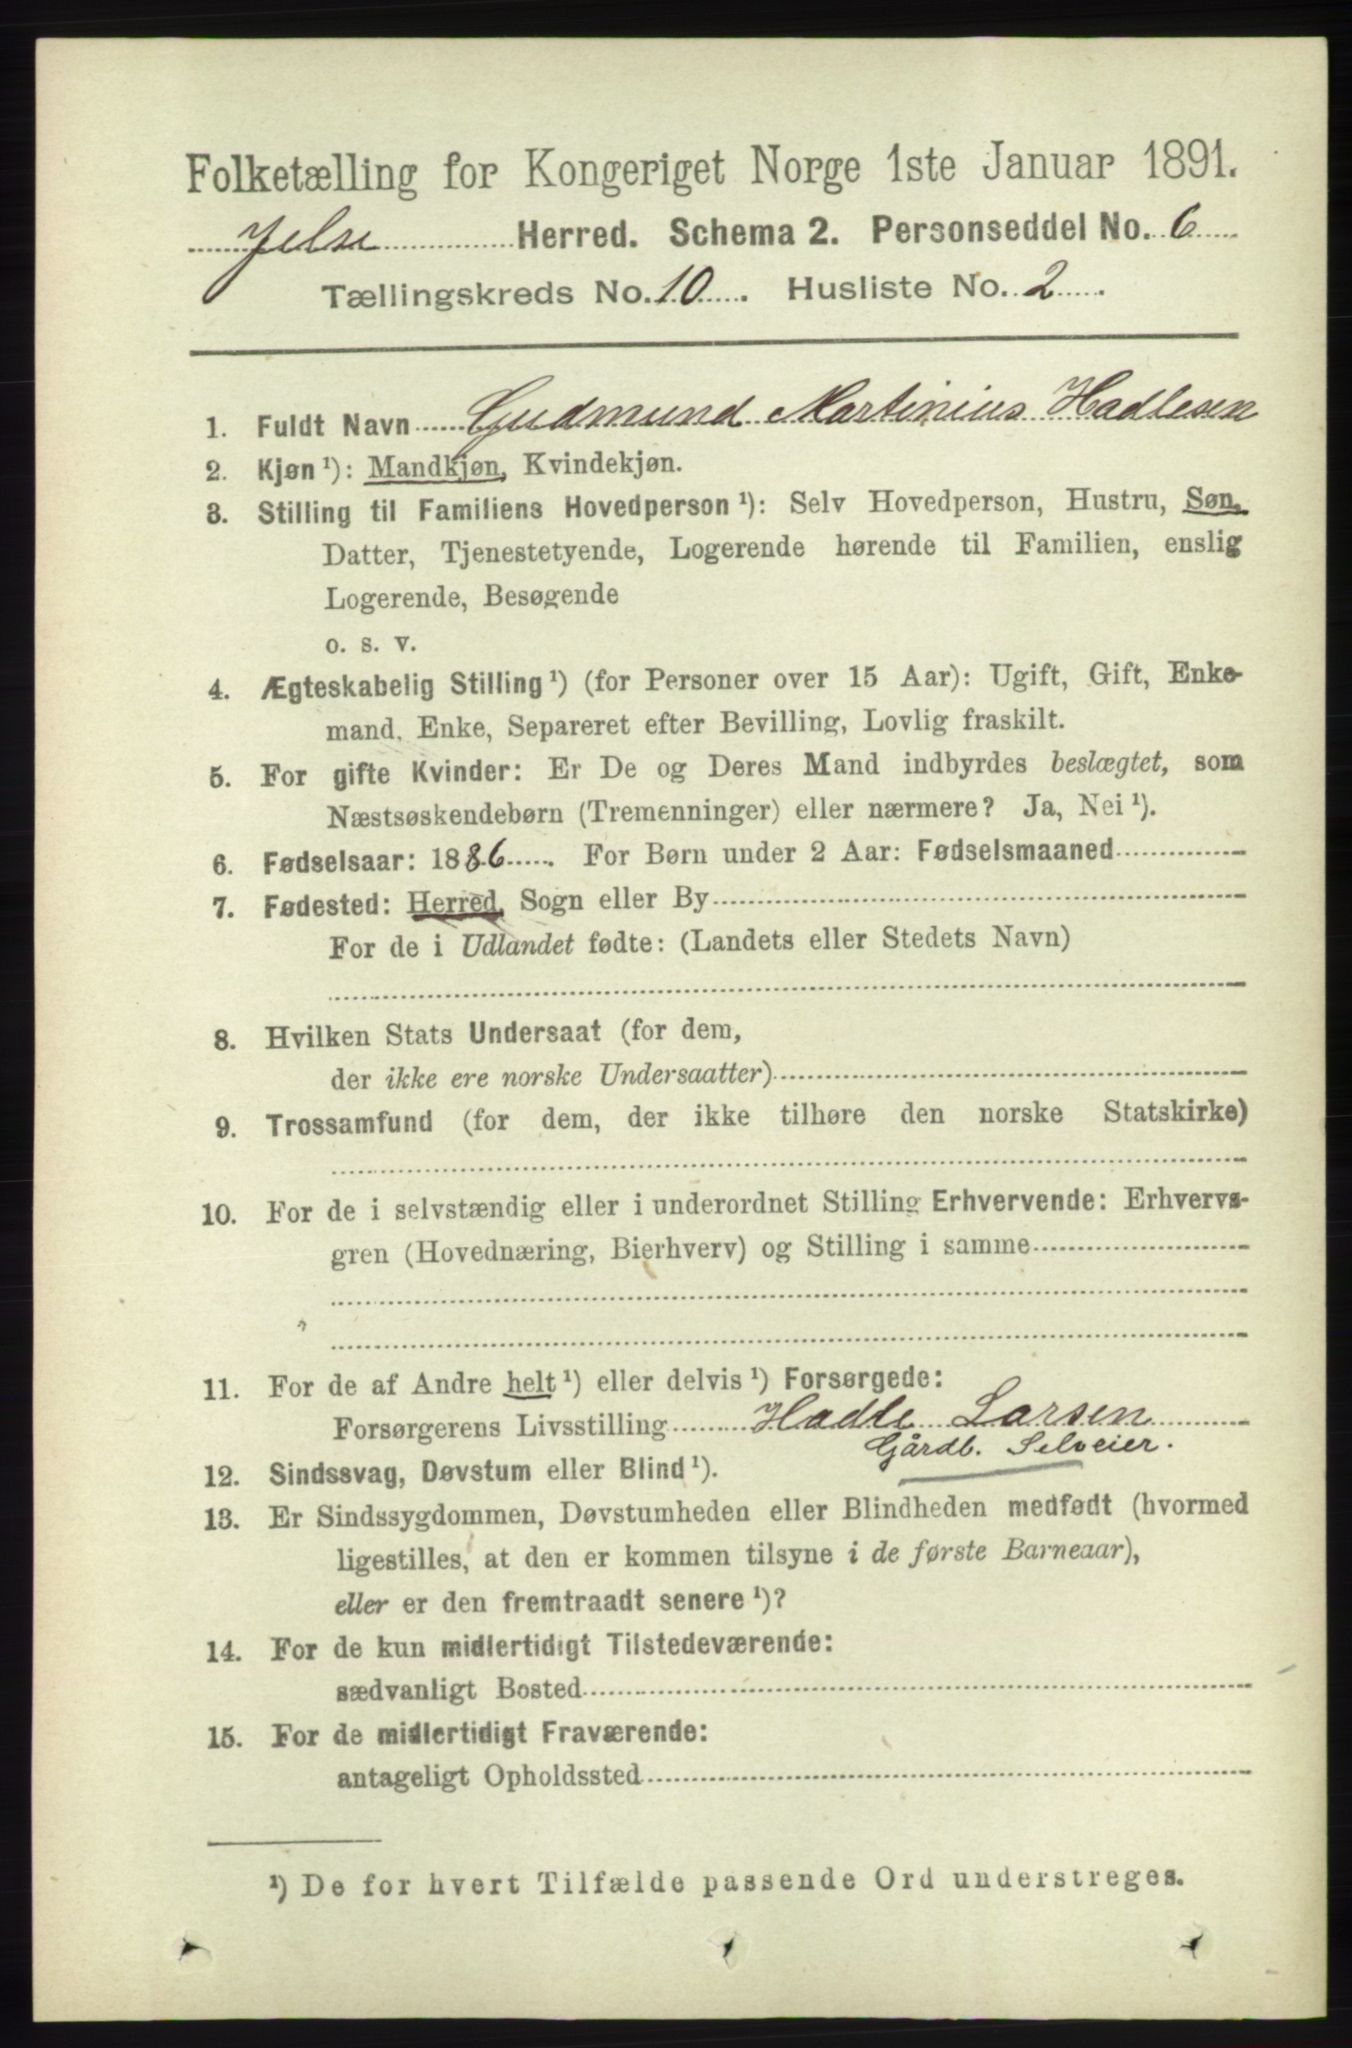 Folketælling for Kongeriget Norge 1ste Januar 1891.
Jelse Herred. Schema 2. Personseddel No. 6
Tællingskreds No. 10. Husliste No. 2.
1. Fuldt Navn Gudmund Martinius Hadlesen
2. Kjøn ¹): Mandkjøn, Kvindekjøn.
3. Stilling til Familiens Hovedperson ¹): Selv Hovedperson, Hustru, Søn,
Datter, Tjenestetyende, Logerende hørende til Familien, enslig
Logerende, Besøgende
o. s. v.
4. Ægteskabelig Stilling ¹) (for Personer over 15 Aar): Ugift, Gift, Enke-
mand, Enke, Separeret efter Bevilling, Lovlig fraskilt.
5. For gifte Kvinder: Er De og Deres Mand indbyrdes beslægtet, som
Næstsøskendebørn (Tremenninger) eller nærmere? Ja, Nei ¹).
6. Fødselsaar: 1886. For Børn under 2 Aar: Fødselsmaaned
7. Fødested: Herred, Sogn eller By
For de i Udlandet fødte: (Landets eller Stedets Navn)
8. Hvilken Stats Undersaat (for dem,
der ikke ere norske Undersaatter)
9. Trossamfund (for dem, der ikke tilhøre den norske Statskirke)
10. For de i selvstændig eller i underordnet Stilling Erhvervende: Erhvervs-
gren (Hovednæring, Bierhverv) og Stilling i samme
11. For de af Andre helt ¹) eller delvis ¹) Forsørgede:
Forsørgerens Livsstilling Hadle Larsen
Gårdb. Selveier.
12. Sindssvag, Døvstum eller Blind ¹).
13. Er Sindssygdommen, Døvstumheden eller Blindheden medfødt (hvormed
ligestilles, at den er kommen tilsyne i de første Barneaar),
eller er den fremtraadt senere ¹)?
14. For de kun midlertidigt Tilstedeværende:
sædvanligt Bosted
15. For de midlertidigt Fraværende:
antageligt Opholdssted
¹) De for hvert Tilfælde passende Ord understreges.